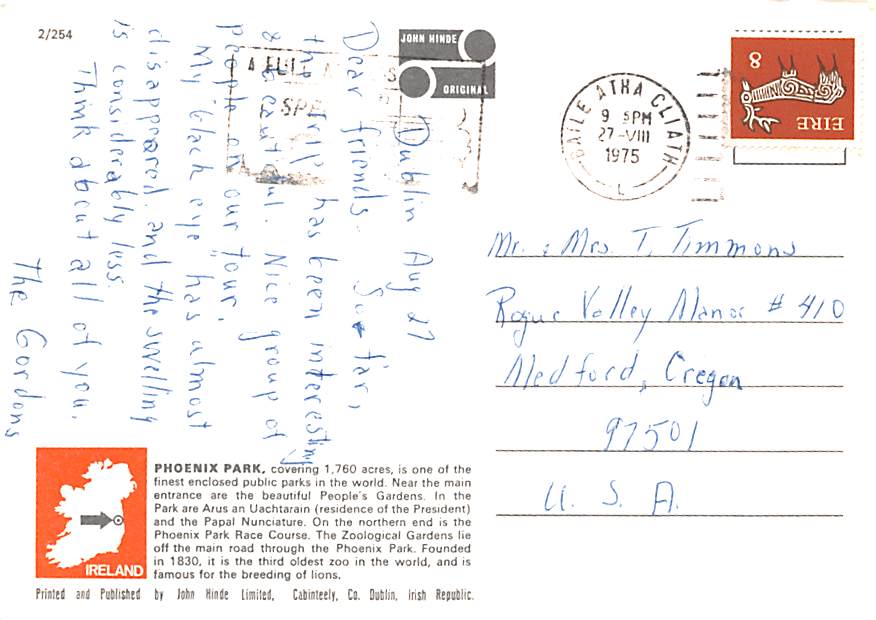 2/254
JOHN HINDE
ORIGINAL
BAILE ATHA CLIATH
9 5PM
27-VIII
1975
L
EIRE
8
A FULL
SPE
Dublin Aug 27
Dear friends. So far,
the trip has been interesting
& beautiful. Nice group of
people on our tour.
My "black eye" has almost
disappeared and the swelling
is considerably less.
Think about all of you.
The Gordons
Mr. & Mrs. T. Timmons
Rogue Valley Manor # 410
Medford, Oregon
97501
U. S. A.
PHOENIX PARK, covering 1,760 acres, is one of the
finest enclosed public parks in the world. Near the main
entrance are the beautiful People's Gardens. In the
Park are Arus an Uachtarain (residence of the President)
and the Papal Nunciature. On the northern end is the
Phoenix Park Race Course. The Zoological Gardens lie
off the main road through the Phoenix Park. Founded
in 1830, it is the third oldest zoo in the world, and is
famous for the breeding of lions.
IRELAND
Printed and Published by John Hinde Limited, Cabinteely, Co. Dublin, Irish Republic.